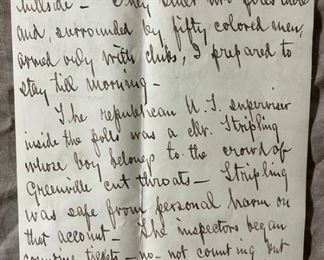 hillside - They built two fires there
and, surrounded by fifty colored men,
armed only with clubs, I prepared to
stay till morning -
The republican U.S. supervisor
inside the polls was a Mr. Stripling
whose boy belongs to the crowd of
Greenville cut throats - Stripling
was safe from personal harm on
that account - The inspectors began
counting tickets - no - not counting but